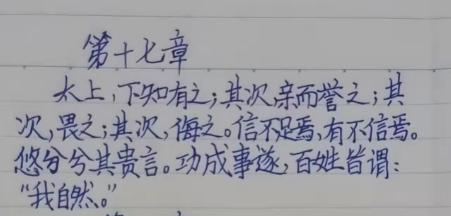 第十七章
太上,下知有之;其次,亲而誉之;其
次,畏之;其次,侮之。信不足焉,有不信焉。
悠兮兮其贵言。功成事遂,百姓皆谓:
“我自然。”